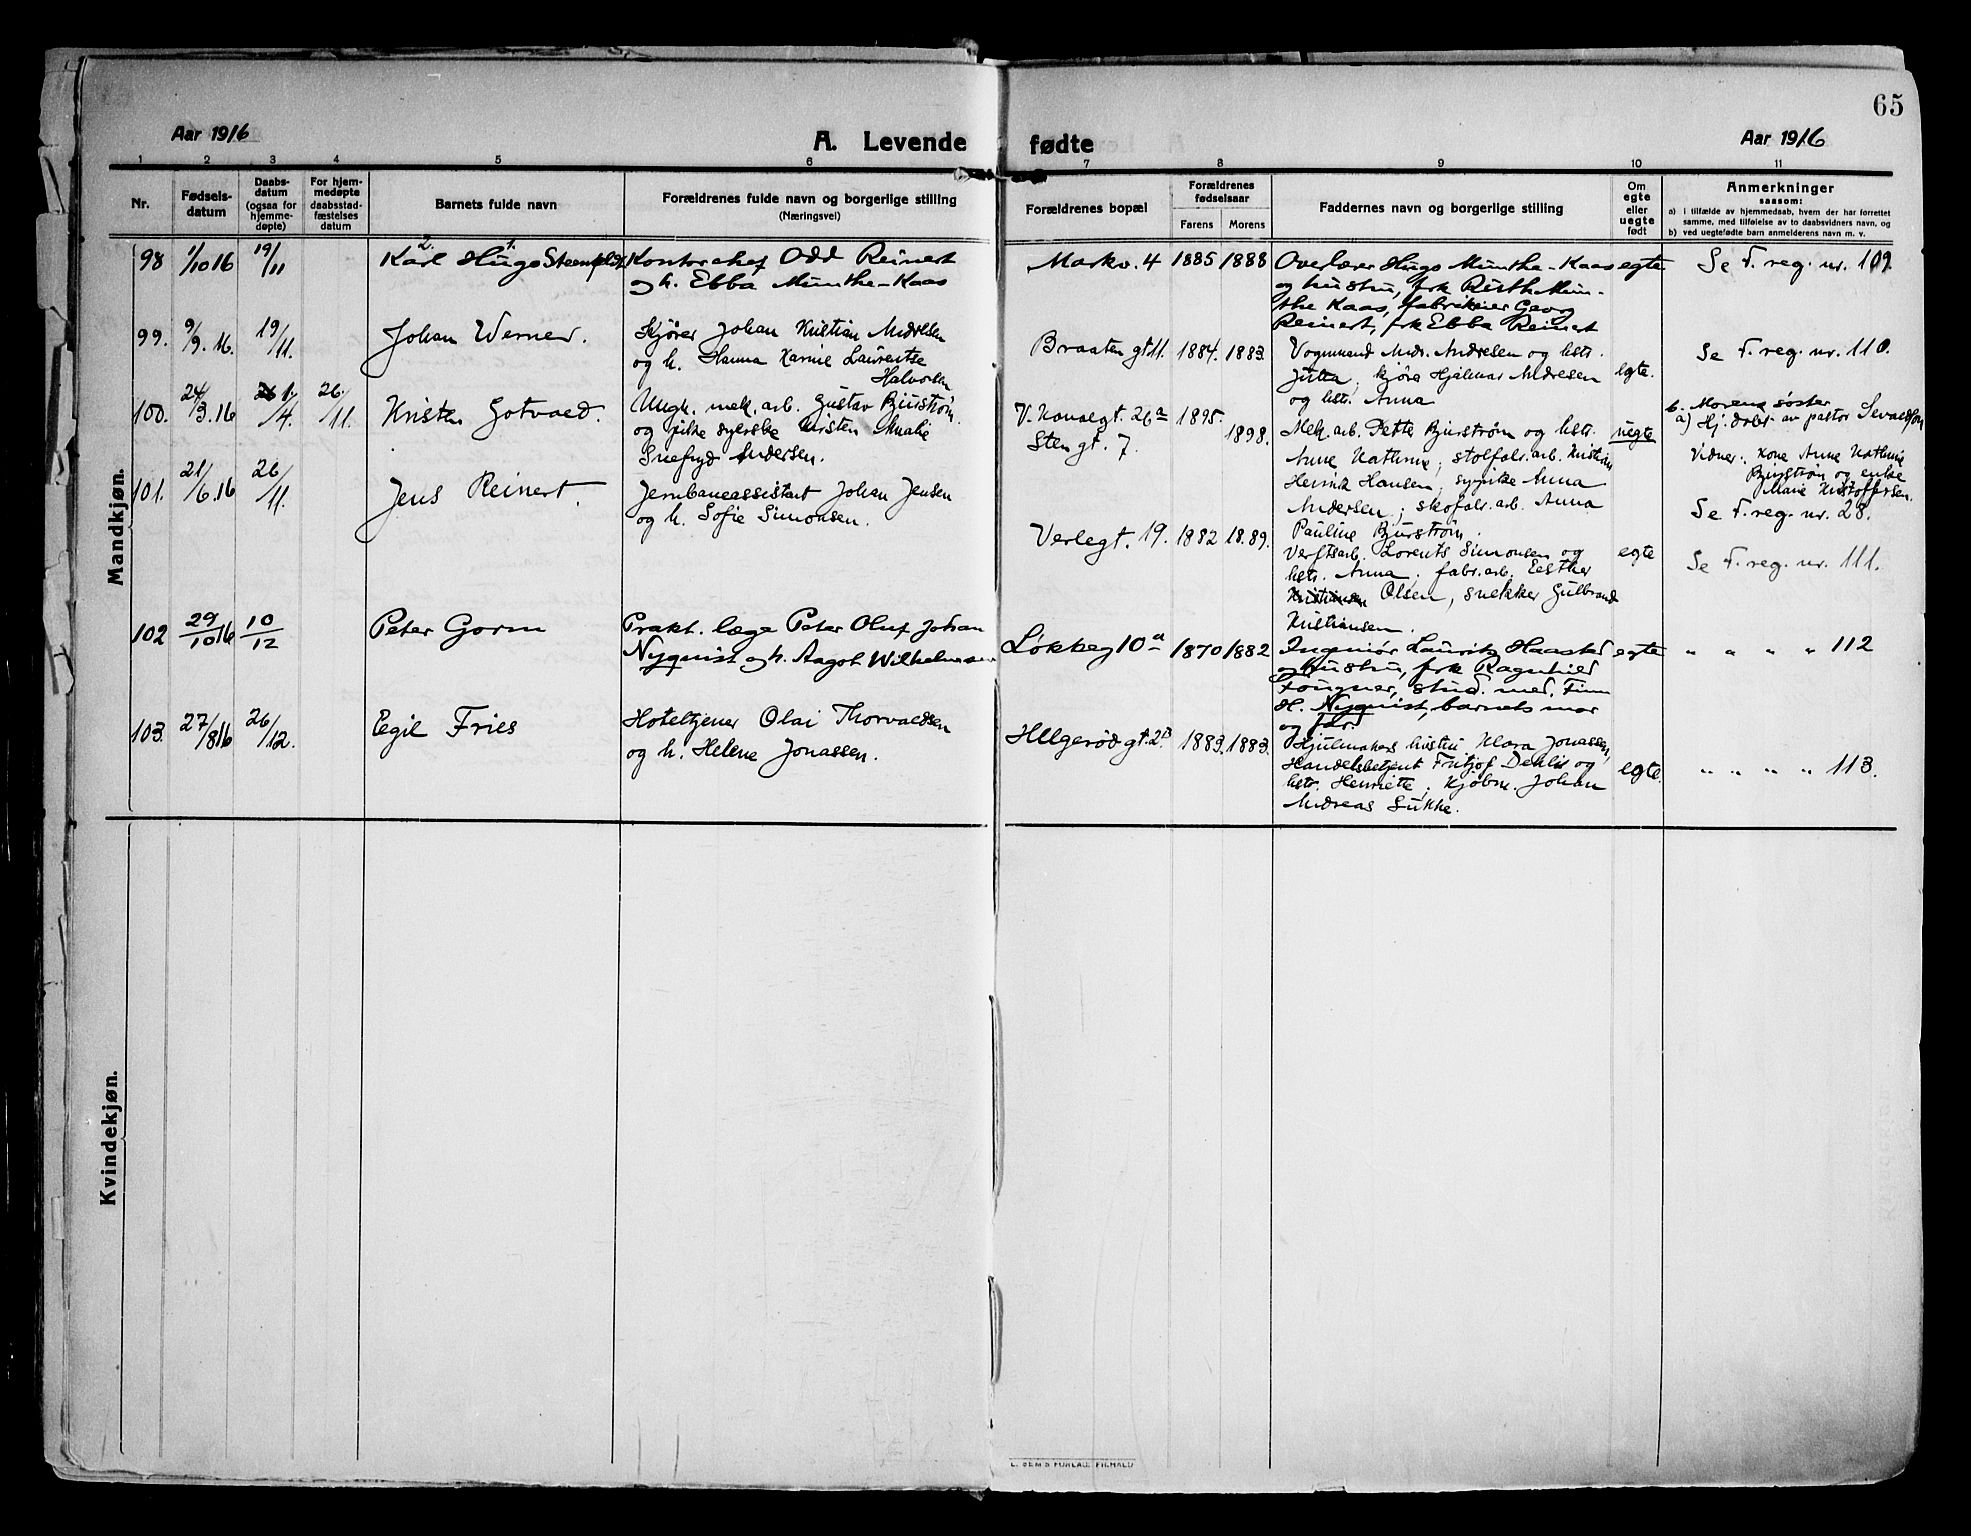 65
Aar 1916
A. Levende
fødte
Aar 1916
1 2 3 4 5 6 7 8 9 10 11
Nr.
Fødsels-
datum
Daabs-
datum
(ogsaa for
hjemme-
døpte)
For hjem-
medøpte
daabsstad-
fæstelses
datum
Barnets fulde navn
Forældrenes fulde navn og borgerlige stilling
(Næringsvei)
Forældrenes bopæl
Forældrenes
fødselsaar
Farens Morens
Faddernes navn og borgerlige stilling
Om
egte
eller
uegte
født
Anmerkninger
saasom:
a) i tilfælde av hjemmedaab, hvem der har forrettet
samme, med tilføielse av to daabsvidners navn, og
b) ved uegtefødte barn anmelderens navn m. v.
Mandkjøn.
98 1/10 16 19/11
2. 1.
Karl Hugo
Kontorchef Odd Reinert
og h. Ebba Munthe-Kaas
Markv. 4 1885 1888
Overlærer Hugo Munthe-Kaas
og hustru, frk Ruth Mun-
the Kaas, fabrikeier Georg
Reinert, frk Ebba Reinert
egte
Se F. reg. nr. 109.
99. 9/9. 16. 19/11.
Johan Werner.
Kjører Johan Kristian Andresen
og h. Hanna Karine Laurentse
Halvorsen
Braaten gt. 11. 1884. 1883.
Vognmand Andr. Andresen og hstr.
Jutta; kjører Hjalmar Andresen
og hstr. Anna
egte.
Se F. reg. nr. 110.
100. 24/3. 16 1./4. 26./11.
Kristen Gotvaed.
Ungk. mek. arb. Gustav Bjurstrøm
og pike syerske Kirsten Amalie
Snefryd Andersen.
V. Kanalgt. 26a 1895.
Sten gt. 7. 1898.
Mek. arb. Pette Bjurstrøm og hstr.
Anne Kathrine; stolfabr. arb. Kristian
Henrik Hansen; sypike Anna
Andersen; skofabr. arb. Anna
Pauline Bjurstrøm.
uegte
b. Morens søster
a) Hj. døbt av pastor Sevaldson
Vidner: Kone Anne Kathrine
Bjurstrøm og enke
Marie Kristoffersen.
Se F. reg. nr. 28.
101. 21/6. 16 26/11.
Jens Reinert.
Jernbaneassistent Johan Jensen
og h. Sofie Simonsen.
Verlegt. 19. 1882 1889.
Verftsarb. Lorents Simonsen og
hstr. Anna; fabr. arb. Esther
Kristiansen Olsen, snekker Gulbrand
Kristiansen.
egte
Se F. reg. nr. 111.
102 29/10 16 10/12
Peter Gorm
Prakt. læge Peter Oluf Johan
Nyquist og h. Aagot Wilhelmsen
Løkkeg 10a 1870 1882
Ingeniør Lauritz Haasted
og hustru, frk Ragnhild
Fougner, stud. med. Finn
H. Nyquist, barnets mor
og far.
egte
" " " " 112
103. 27/8 16 26/12.
Egil Fries
Hoteltjener Olai Thorvaldsen
og h. Helene Jonassen.
Helgerød gt. 2b 1883. 1883.
Hjulmakers hustru Klara Jonassen,
Handelsbetjent Fritjof Dehlie og
hstr. Henriette; Kjøbm. Johan
Andreas Sukke.
egte.
" " " " 113.
Kvindekjøn.
E. SEM'S FORLAG, FR.HALD